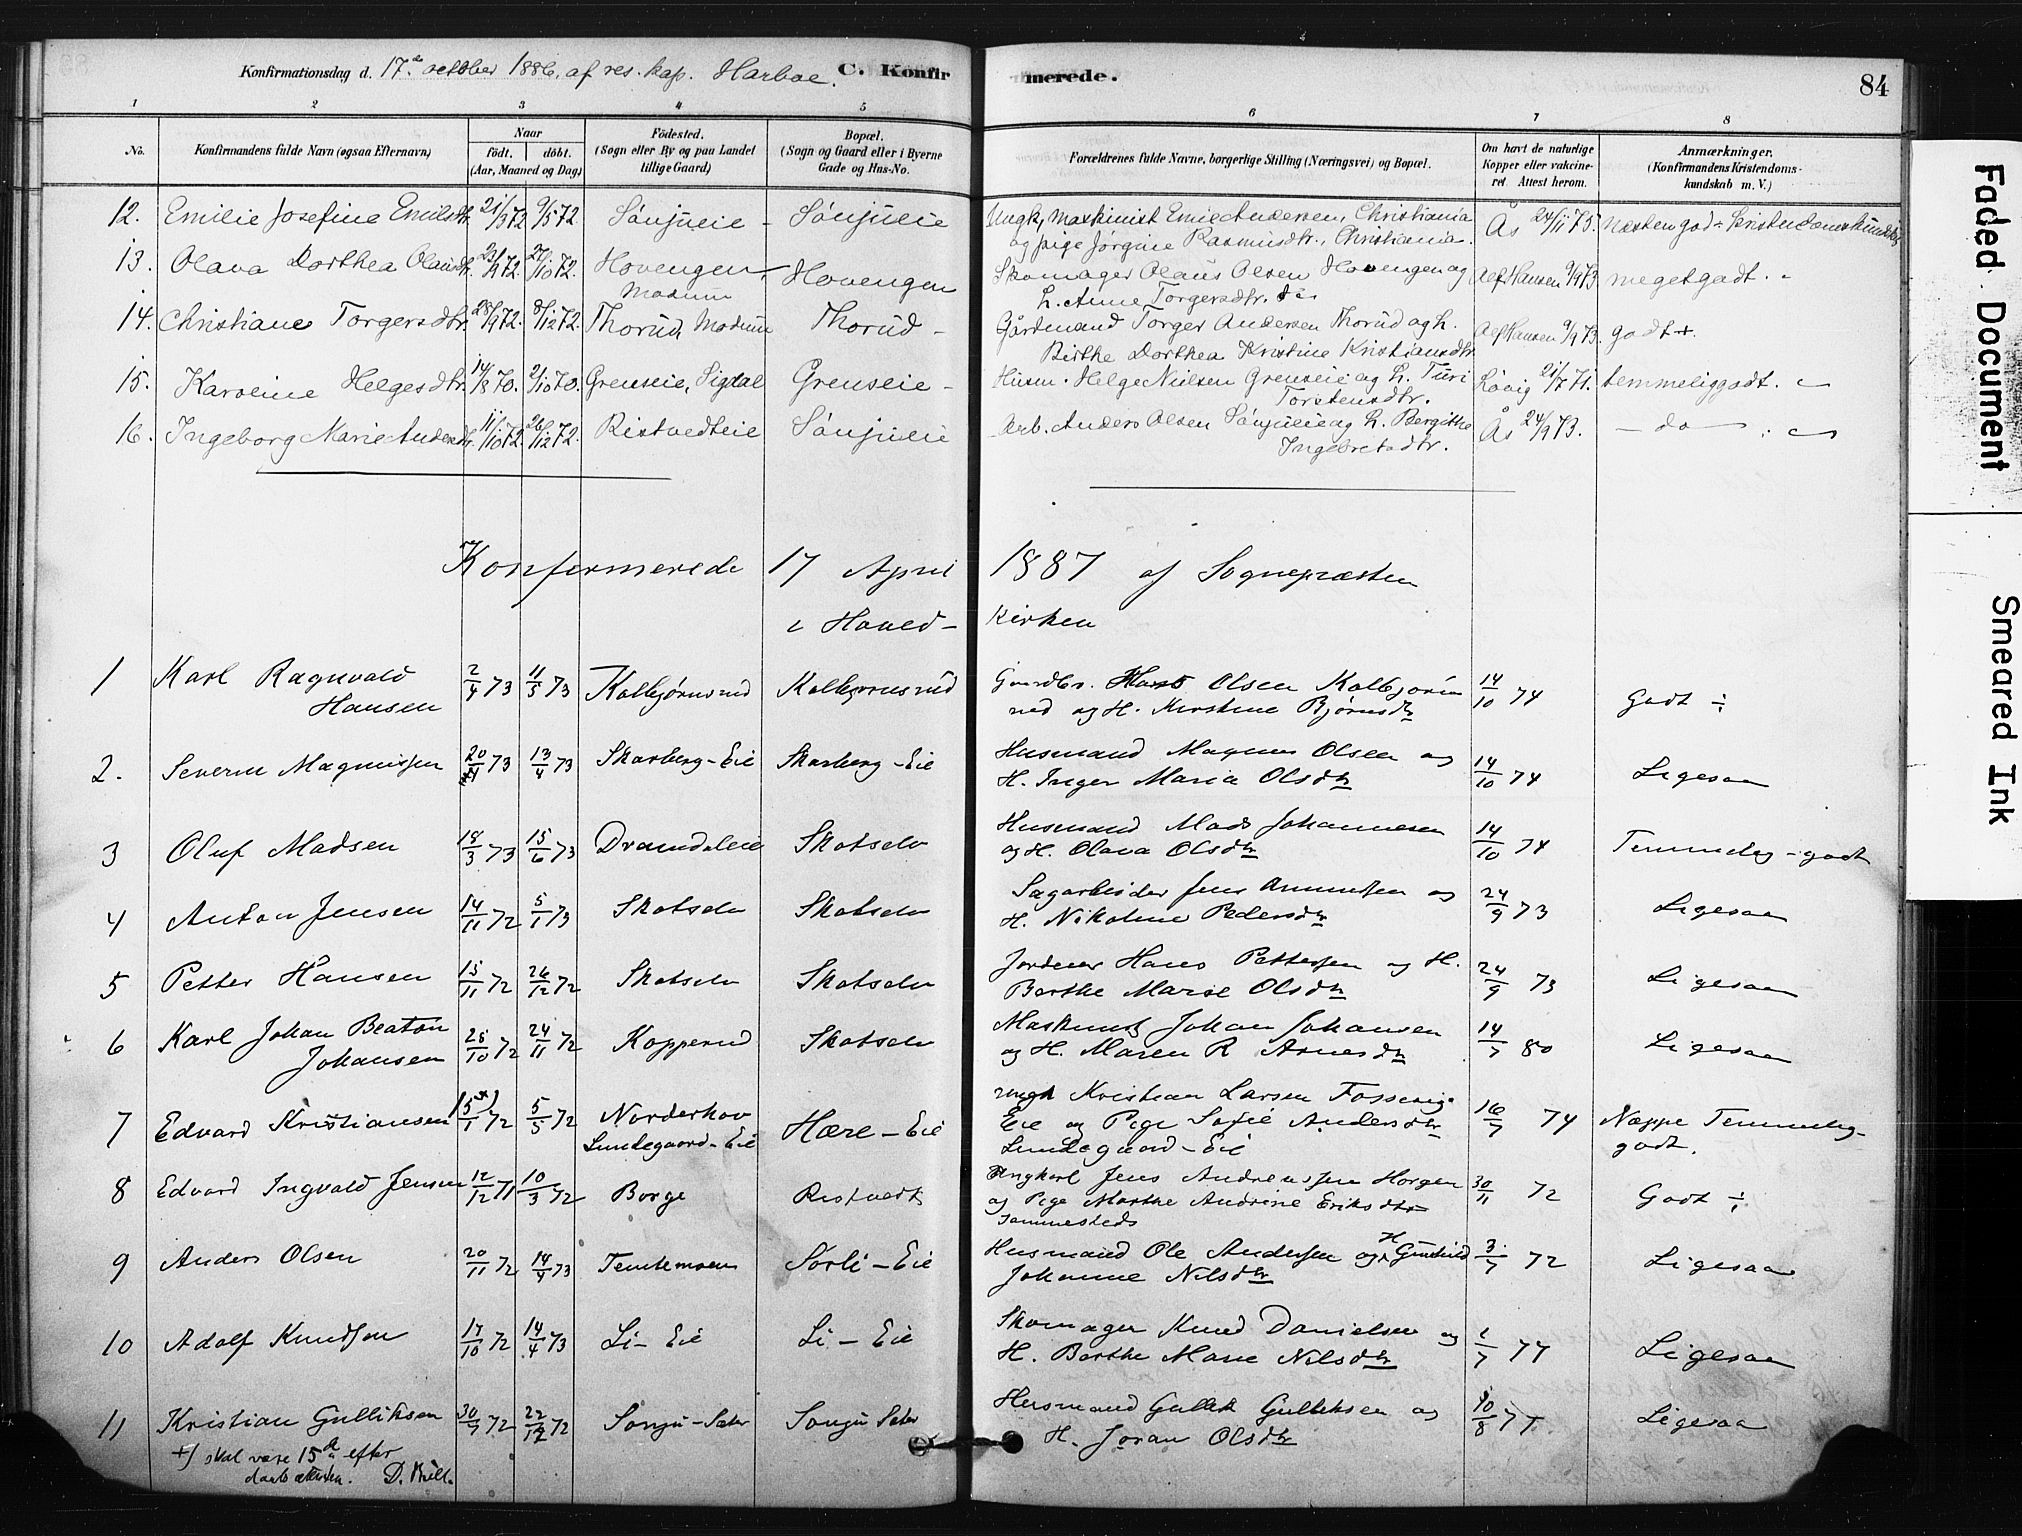 Konfirmationsdag d. 17de october 1886, af res. kap. Harboe. C. Konfirmerede. 84
1 2 3 4 5 6 7 8
No. Konfirmandens fulde Navn (ogsaa Efternavn) Naar födt. döbt. (Aar, Maaned og Dag) Födested. (Sogn eller By og paa Landet tillige Gaard) Bopæl. (Sogn og Gaard eller i Byerne Gade og Hus-No. Forældrenes fulde Navne, borgerlige Stilling (Næringsvei) og Bopæl. Om havt de naturlige Kopper eller vakcineret. Attest herom. Anmærkninger, (Konfirmandens Kristendomskundskab m. V.)
12. Emilie Josefine Emilsdtr. 21/3 72 9/5 72. Sønjueie - Sønjueie Ungk, maskinist Emil Andersen, Christiania Ås 24/11 75. Næsten god Kristendomskundskab
og pige Jørgine Rasmusdtr., Christiania.
13. Olava Dorthea Olausdtr. 27/10 72. Hovengen, Hovengen Skomager Olaus Olsen Hovengen og Alf Hansen 9/9 73. meget godt.
Modum h. Anne Torgersdtr.
14. Christiane Torgersdtr. 28/9 72. 8/12 72. Thorud, Modum Thorud - Gårdmand Torger Andersen Thorud og h. Alf Hansen 9/9 73. godt +.
Birthe Dorthea Kristine Kristiansdtr.
15. Karoline Helgesdtr. 14/8 70. 2/10 70. Grenseie, Sigdal Grenseie - Husm. Helge Nielsen Grenseie og h. Turi 21/7 71. temmelig godt.
Torstensdtr.
16. Ingeborg Marie Andersdtr. 11/10 72. 26/12 72. Ristvedteie Sønjueie Arb. Anders Olsen Sønjueie og h. Bergithe Ås 24/9 73. - do -
Ingebretsdtr.
Konfirmerede 17 April 1887 af Sognepræsten
i Hoved- Kirken
1 Karl Ragnvald 2/4 73 11/5 73 Kolbjørnsrud Kolbjørnsrud Gaardbr. Hans Olsen Kolbjørns 14/10 74 Godt ÷
Hansen rud og H. Kirstine Bjørnsdtr
2. Severin Magnussen 20/1 73 13/4 73 Skarberg - Eie Skarberg - Eie Husmand Magnus Olsen og 14/10 74 Ligesaa
H. Inger Maria Olsdtr
3 Oluf Madsen 18/3 73 15/6 73 Dramdaleie Skotselv Husmand Mads Johannesen 14/10 74 Temmelig - godt
og H. Olava Olsdtr
4 Anton Jensen 14/11 72 5/1 73 Skotselv Skotselv Sagarbeider Jens Ammundsen og 24/9 73 Ligesaa
H. Nikoline Pedersdtr
5 Petter Hansen 15/11 72 26/12 72 Skotselv Skotselv Hans Pettersen og H. 24/9 73 Ligesaa
Berthe Marie Olsdtr
6 Karl Johan Beaton 25/10 72 24/11 72 Kopperud Skotselv Maskinist Johan Johansen 14/7 80 Ligesaa
Johansen og H. Maren R Arnesdtr
7 Edvard Kristiansen 5/1 x) 72 5/5 72 Norderhov Hære - Eie ungk Kristian Larsen Fossevig 16/7 74 Næppe Temmelig-
Lundegaard - Eie Eie og Pige Sofie Andersdtr godt.
Lundegaard - Eie
8 Edvard Ingvald Jensen 12/12 71 10/3 72 Borge Ristvedt Ungkarl Jens Andreassen Horgen 30/11 72 Godt ÷
og Pige Marthe Andrine Eriksdtr
sammesteds
9 Anders Olsen 20/11 72 14/4 73 Sørli - Eie Husmand Ole Andersen og H Gunhild 3/7 72 Ligesaa
Johanne Nilsdtr
10 Adolf Knudsen 17/10 72 14/4 73 Li - Eie Li - Eie Skomager Knud Danielsen og 77 Ligesaa
H. Berthe Marie Nilsdtr
11 Kristian Gulliksen 30/7 72 22/12 72 Songu - Sæter Songu Sæter Husmand Gullik Gulliksen og 10/8 Ligesaa
H. Joran Olsdtr
+) skal være 15de efter
daabsattesten.
Faded Document
Smeared Ink